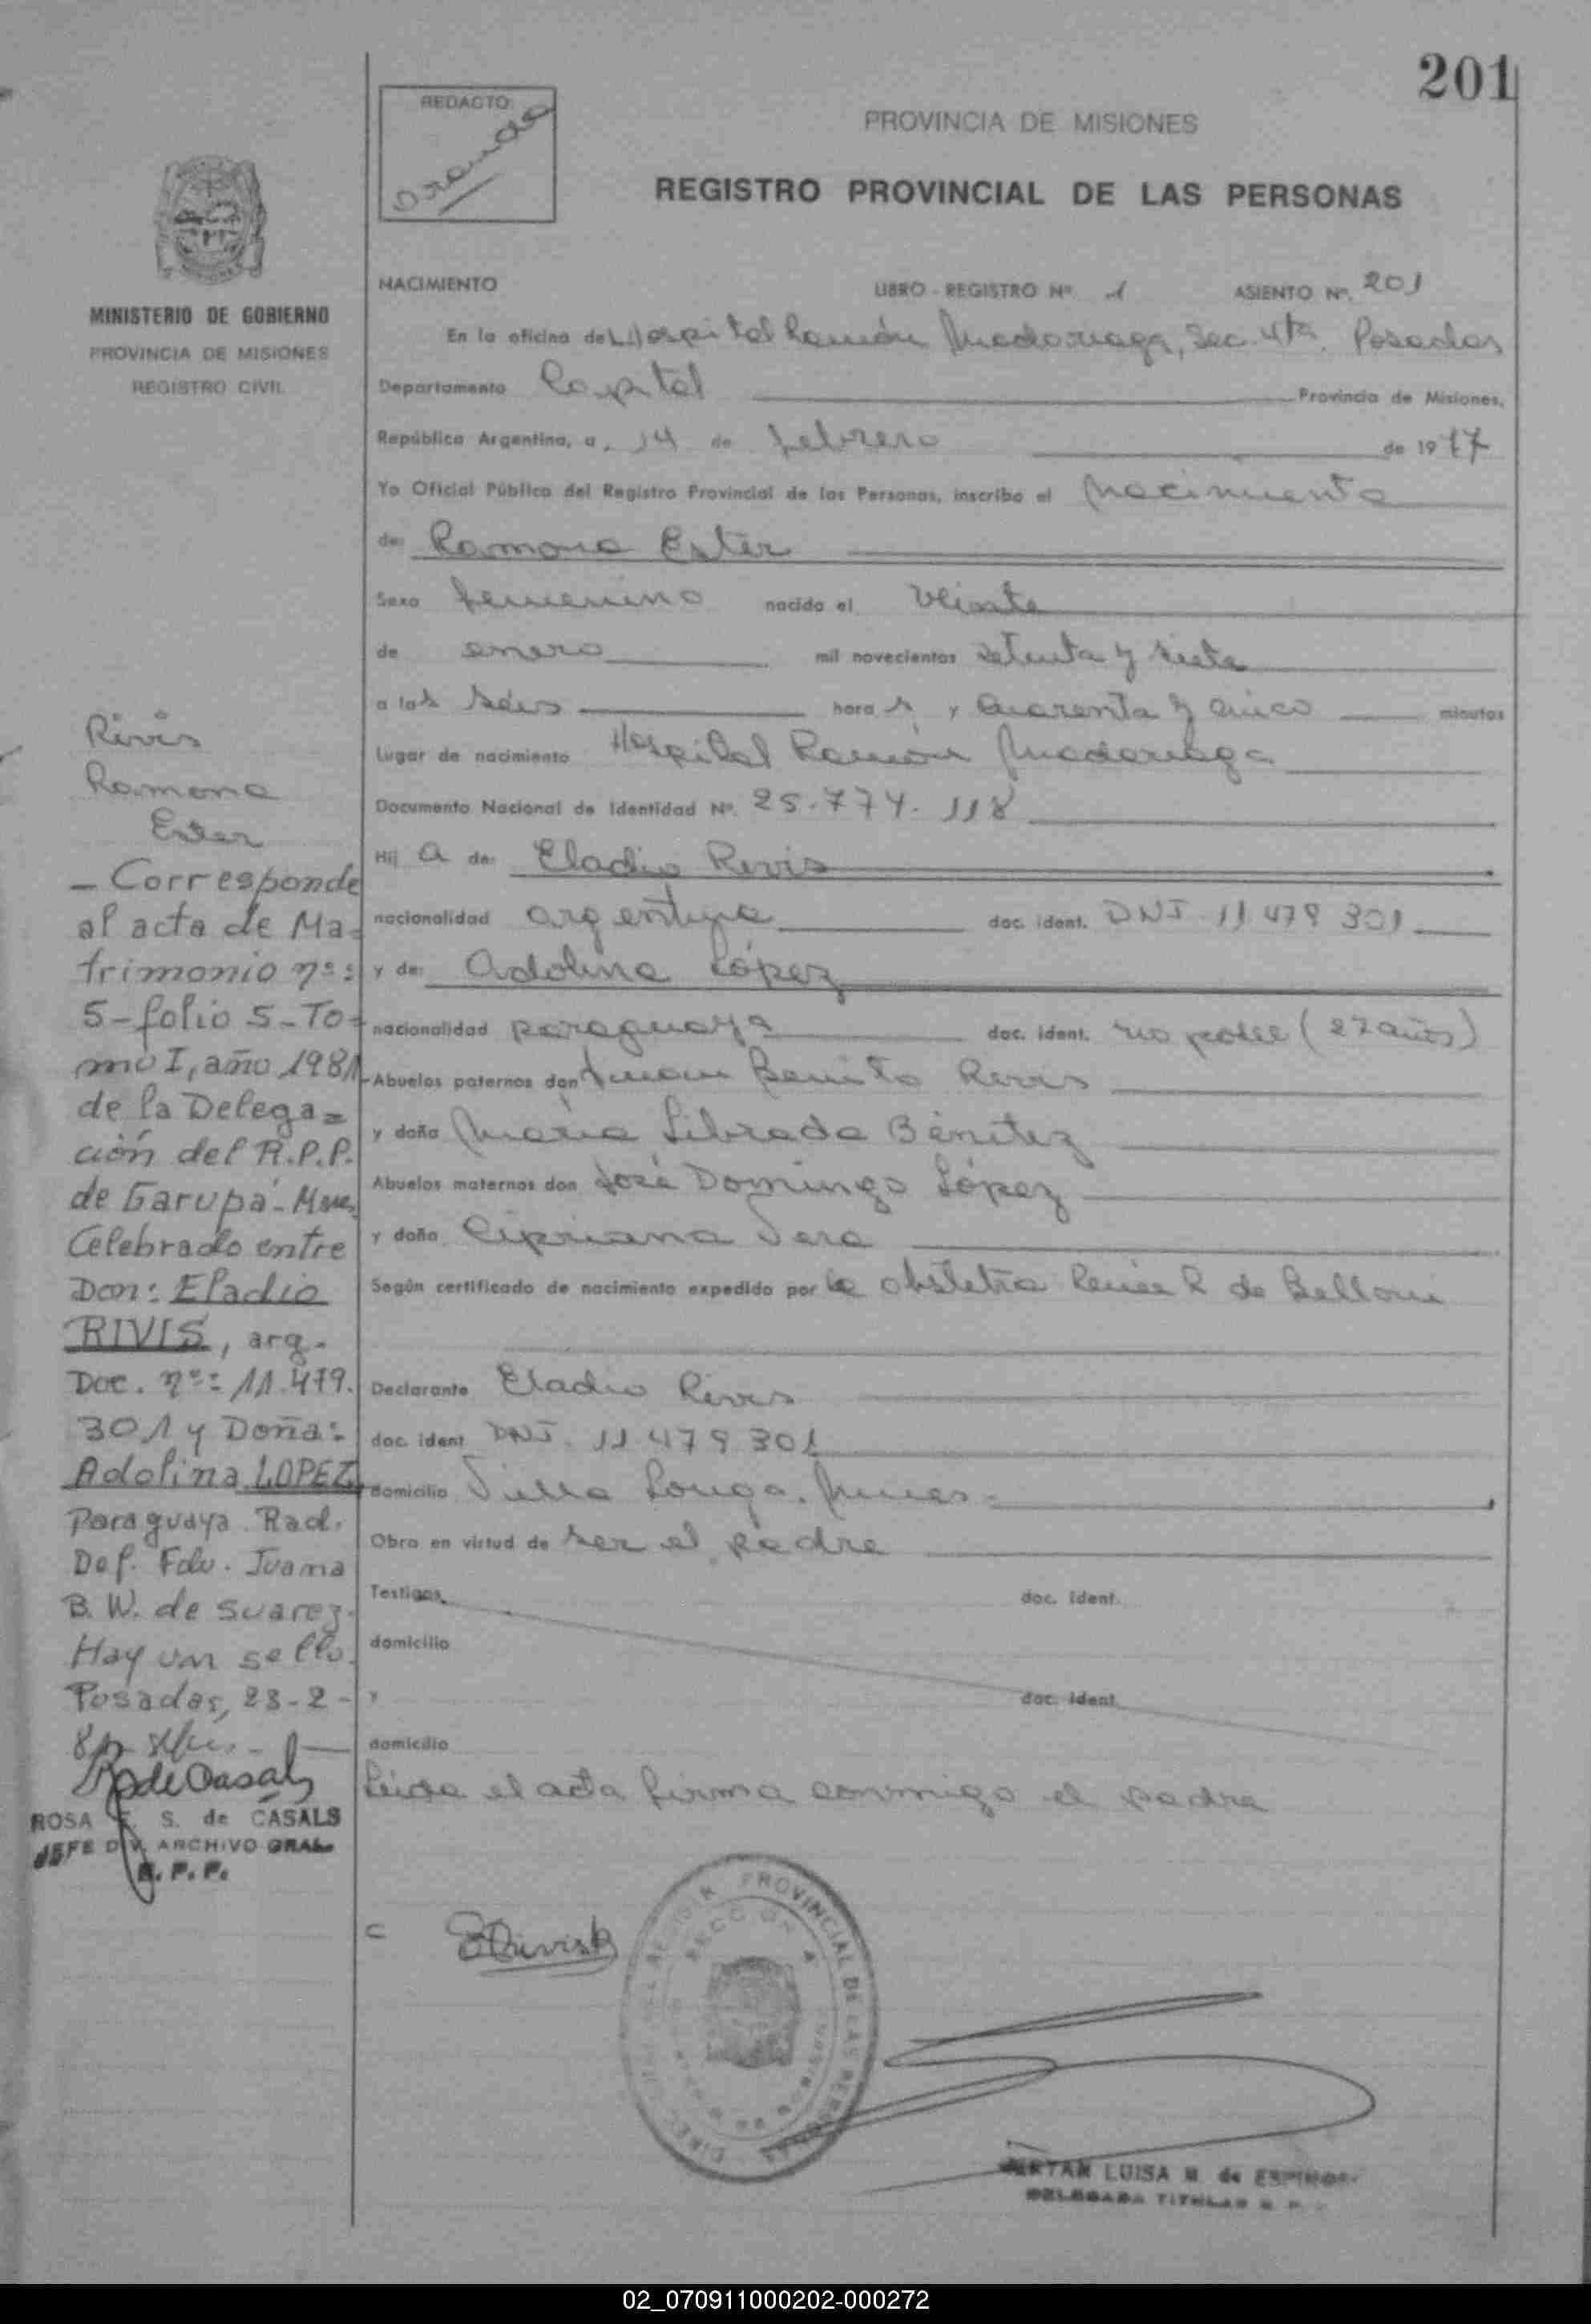 201
REDACTO:
PROVINCIA DE MISIONES
REGISTRO PROVINCIAL DE LAS PERSONAS
MINISTERIO DE GOBIERNO
PROVINCIA DE MISIONES
REGISTRO CIVIL
NACIMIENTO LIBRO - REGISTRO Nº. 1 ASIENTO Nº. 201
En la oficina de Hospital Ramón Madariaga, Sec. 4ta. Posadas
Departamento Capital Provincia de Misiones,
República Argentina, a 14 de febrero de 1977
Yo Oficial Público del Registro Provincial de las Personas, inscribo el Nacimiento
de: Ramona Ester
Sexo femenino nacido el veinte
de enero mil novecientos setenta y siete
a las seis hora s y cuarenta y cinco minutos
Lugar de nacimiento Hospital Ramón Madariaga
Documento Nacional de Identidad Nº. 25.774.118
Hij a de: Eladio Rivis
nacionalidad argentina doc. ident. DNI. 11.479.301
y de: Adolina López
nacionalidad paraguaya doc. ident. no posee (27 años)
Abuelos paternos don Juan Benito Rivis
y doña María Librada Bénitez
Abuelos maternos don José Domingo López
y doña Cipriana Vera
Según certificado de nacimiento expedido por la obstetra Renee R de Belloni
Declarante Eladio Rivis
doc. ident. DNI. 11.479.301
domicilio Villa Longa. Mnes.
Obra en virtud de ser el padre
Testigos doc. ident.
domicilio
y doc. ident.
domicilio
Leída el acta firma conmigo el padre
Rivis
Ramona
Ester
- Corresponde
al acta de Ma-
trimonio nº:
5-folio 5-To-
mo I, año 1981
de la Delega=
ción del R.P.P.
de Garupá-Mnes.
Celebrado entre
Don: Eladio
RIVIS, arg.
Doc. nº: 11.479.
301 y Doña:
Adolina LOPEZ
Paraguaya. Rad.
Def. Fdo. Juana
B. W. de Suarez.
Hay un sello.
Posadas, 23-2-
ROSA E. S. de CASALS
JEFE DIV. ARCHIVO GRAL.
R. P. P.
PROVINCIAL DE LAS PERSONAS
LUISA M. de
DELEGADA TITULAR R. P.
02_070911000202-000272